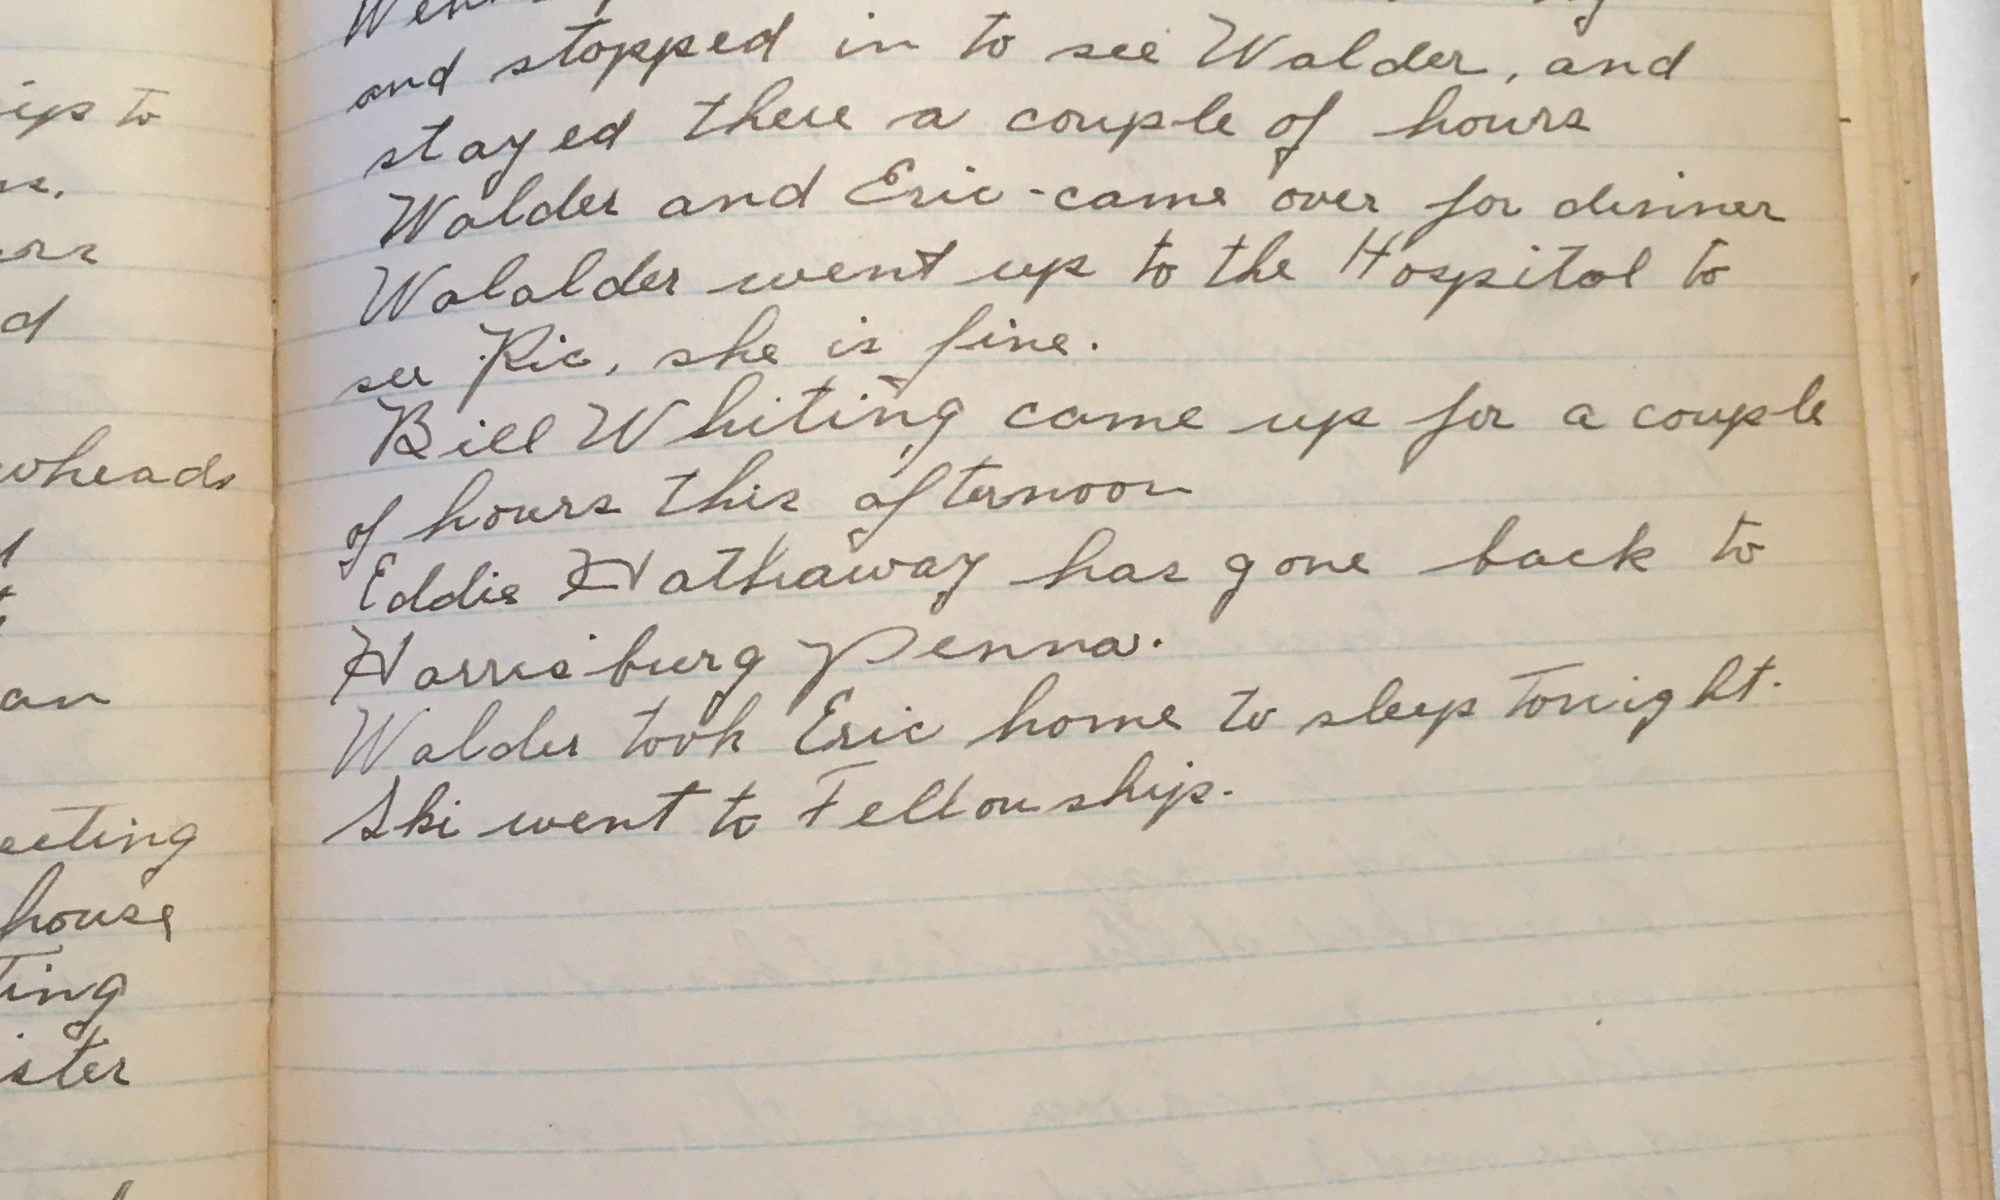 ips to
wheads
an
eeting
house
ting
ister
and stopped in to see Walder, and
stayed there a couple of hours
Walder and Eric - came over for dinner
Walalder went up to the Hospital to
see Ric, she is fine.
Bill Whiting came up for a couple
of hours this afternoon
Eddie Hathaway has gone back to
Harrisburg Penna.
Walder took Eric home to sleep tonight.
Ski went to Fellowship.